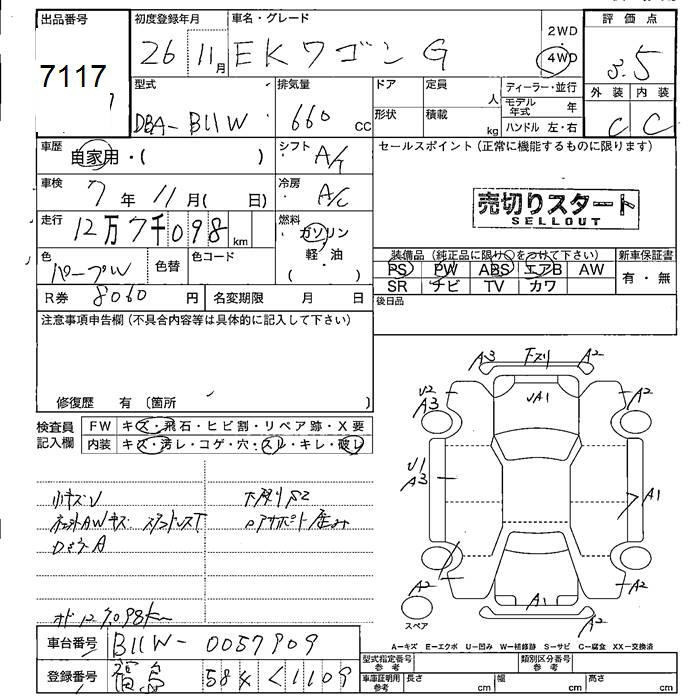 出品番号 7117
初度登録年月 26 11月
車名・グレード EKワゴンG
2WD
4WD
評価点 3.5
外装 内装
C C
型式 DBA-B11W
排気量 660 cc
ドア 定員 人
形状 積載 kg
ディーラー・並行
モデル年式 年
ハンドル 左・右
車歴 自家用・( )
シフト A/T
セールスポイント (正常に機能するものに限ります)
車検 7年 11月( 日)
冷房 A/C
売切りスタート
SELLOUT
走行 12万7千098 km
燃料 ガソリン
軽・油
( )
色 パープルW
色替
色コード
装備品 (純正品に限り○をつけて下さい)
PS PW ABS エアB AW
SR ナビ TV カワ
新車保証書
有・無
R券 8060円
名変期限 月 日
後日品
注意事項申告欄 (不具合内容等は具体的に記入して下さい)
修復歴 有 〔箇所 〕
検査員記入欄
FW キズ・飛石・ヒビ割・リペア跡・X要
内装 キズ・汚レ・コゲ・穴・スレ・キレ・破レ
A3 下スリ A2
U2 A3 A2
UA1
U1 A3 A1
A2 A2
A1 A2
スペア
A-キズ E-エクボ U-凹み W-補修跡 S-サビ C-腐食 XX-交換済
車台番号 B11W-0057909
登録番号 福島 58 1109
型式指定番号 参考
類別区分番号 参考
車庫証明用 参考 長さ cm 幅 cm 高さ cm